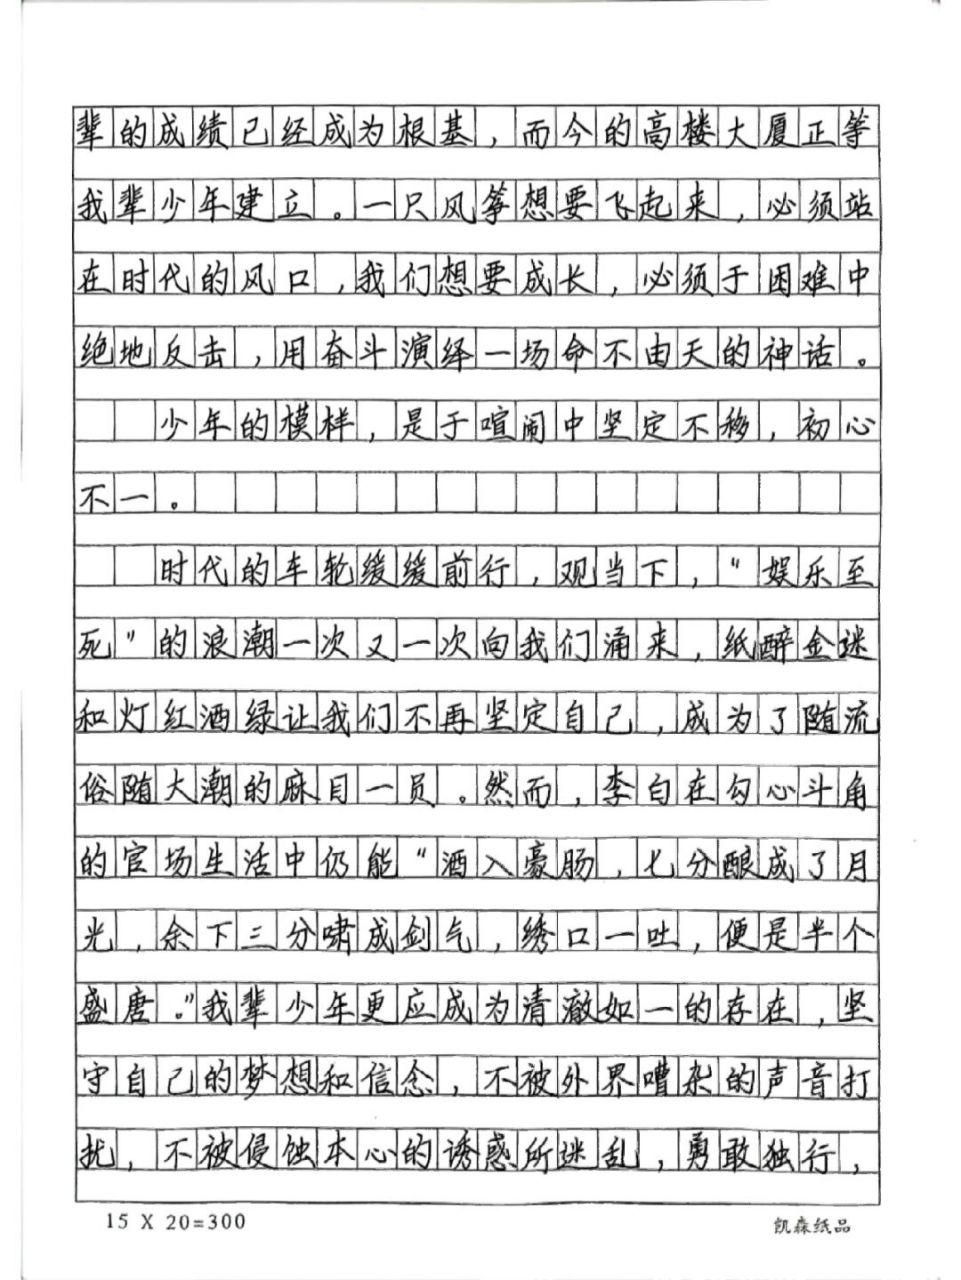 辈的成绩已经成为根基，而今的高楼大厦正等
我辈少年建立。一只风筝想要飞起来，必须站
在时代的风口，我们想要成长，必须于困难中
绝地反击，用奋斗演绎一场命不由天的神话。
少年的模样，是于喧闹中坚定不移，初心
不一。
时代的车轮缓缓前行，观当下，“娱乐至
死”的浪潮一次又一次向我们涌来，纸醉金迷
和灯红酒绿让我们不再坚定自己，成为了随流
俗随大潮的麻目一员。然而，李白在勾心斗角
的官场生活中仍能“酒入豪肠，七分酿成了月
光，余下三分啸成剑气，绣口一吐，便是半个
盛唐。”我辈少年更应成为清澈如一的存在，坚
守自己的梦想和信念，不被外界嘈杂的声音打
扰，不被侵蚀本心的诱惑所迷乱，勇敢独行，
15 X 20=300
凯森纸品